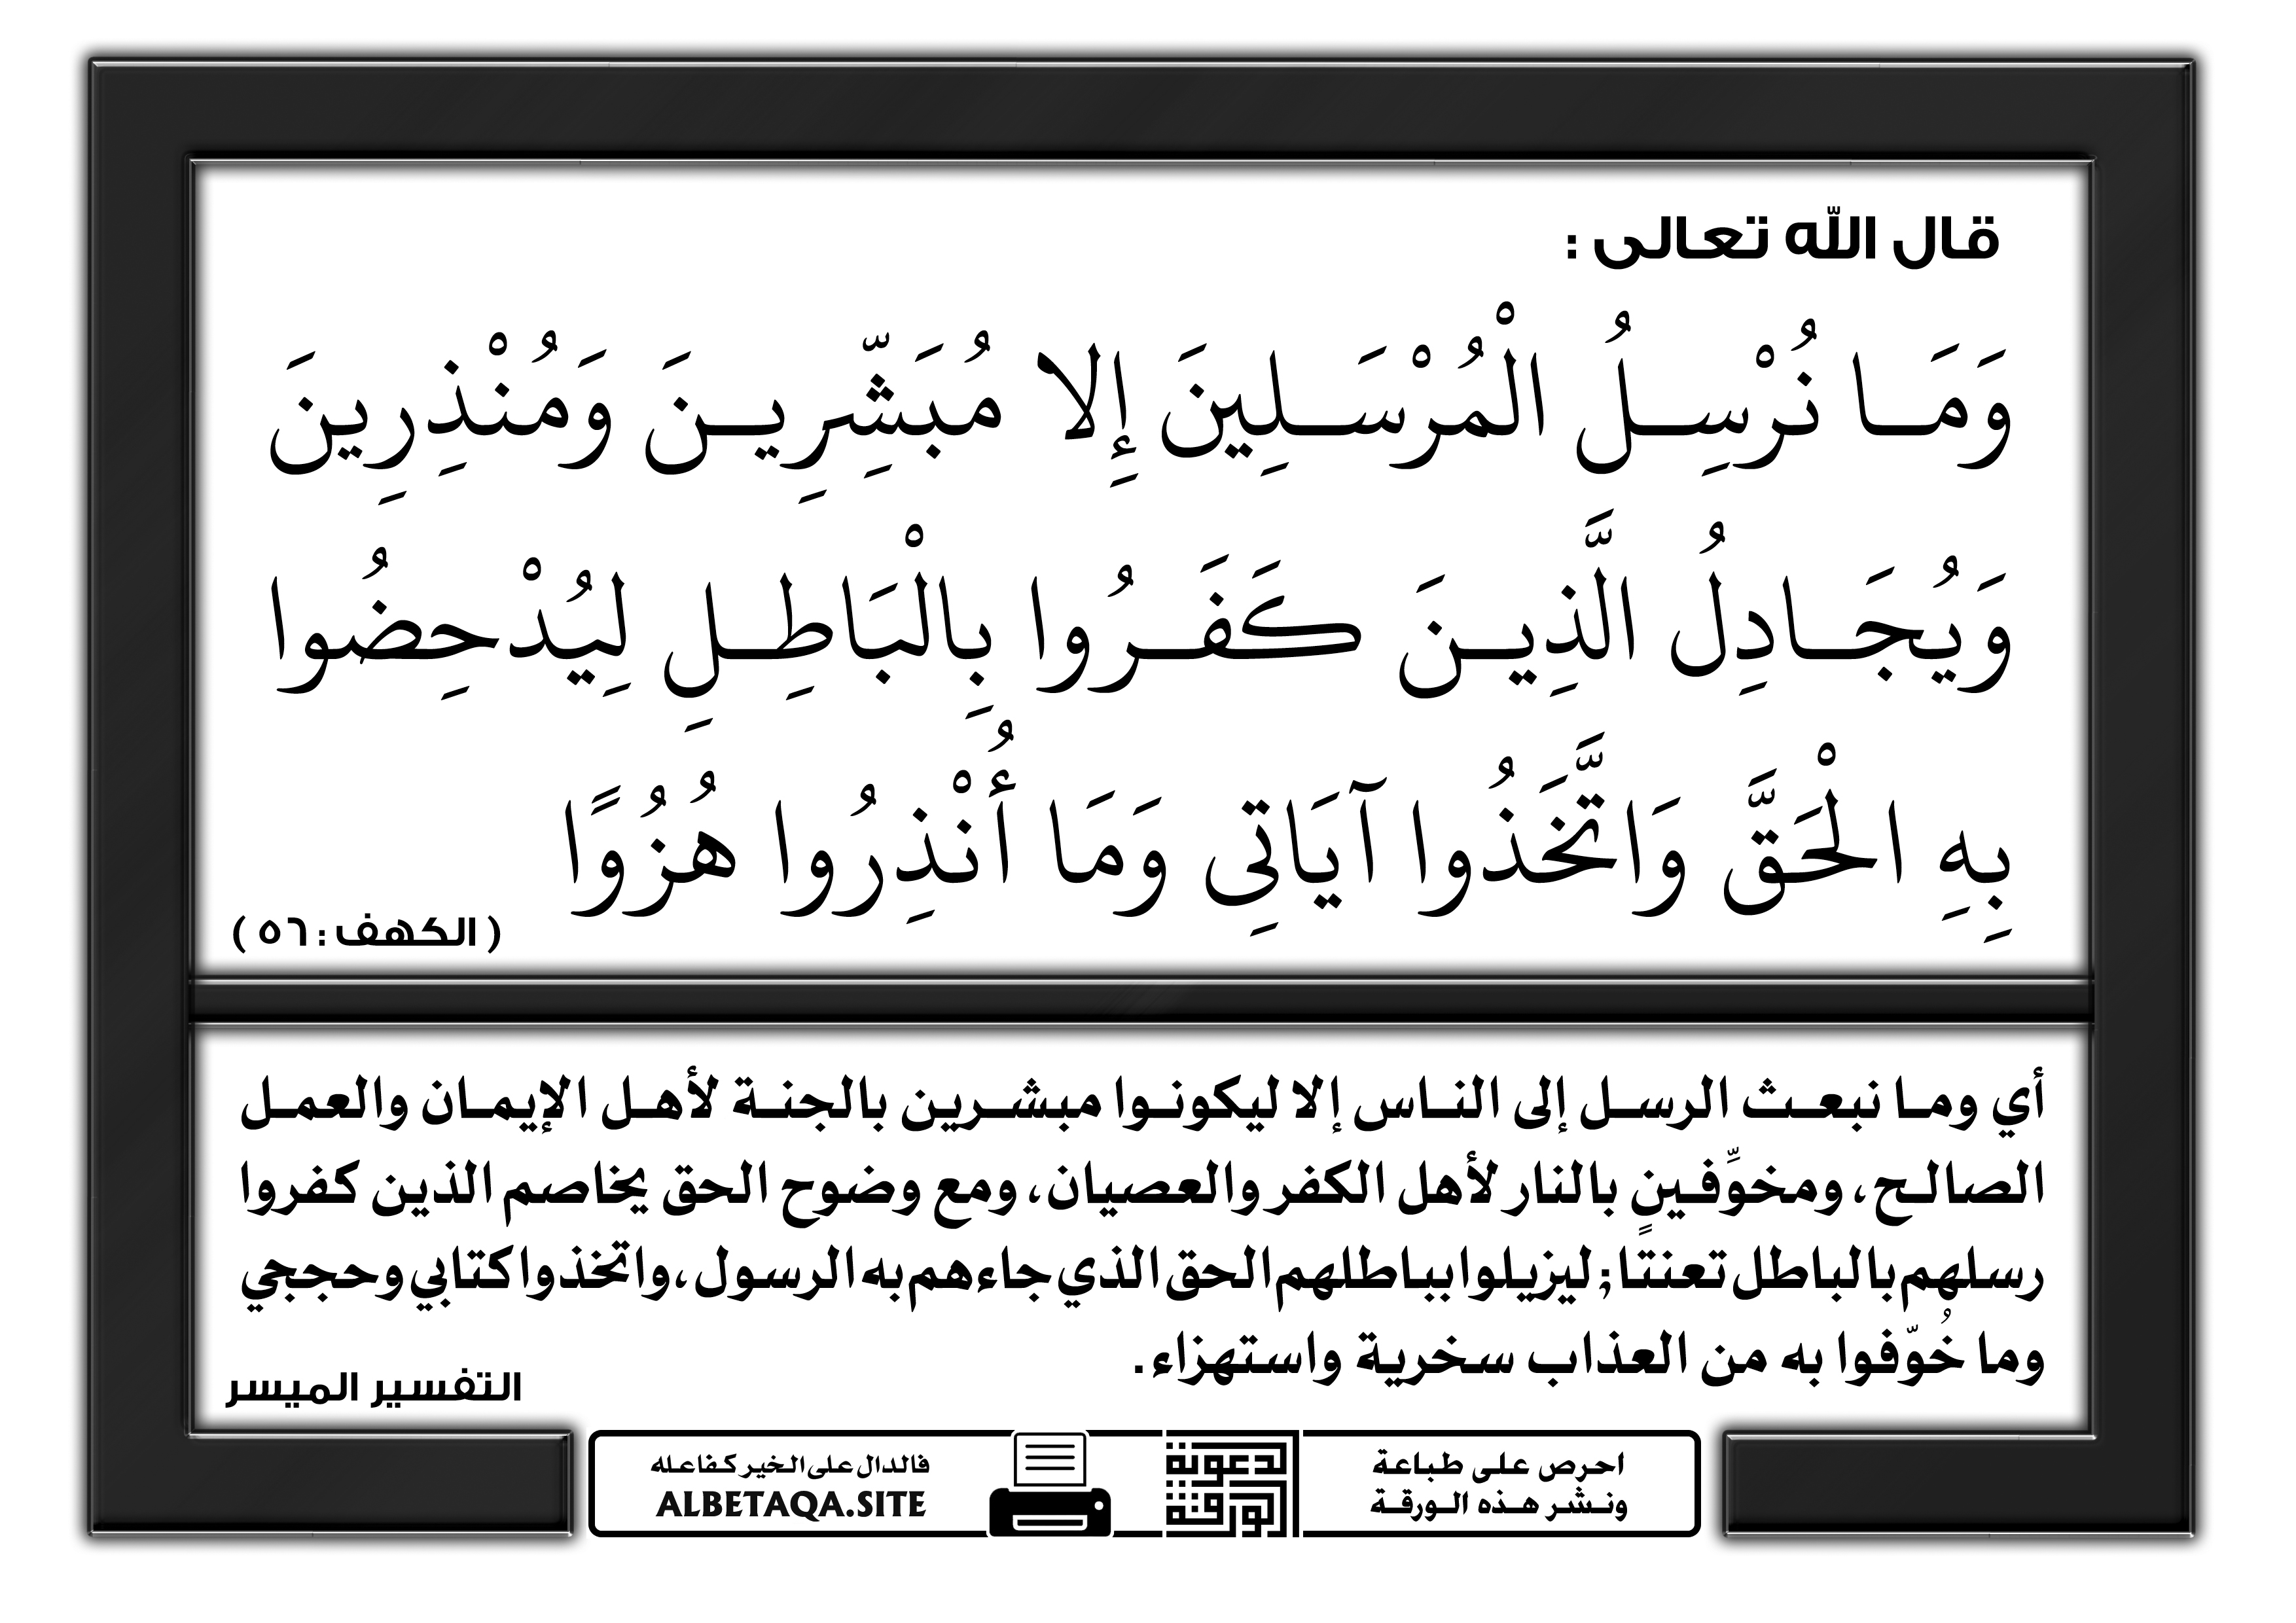 قال الله تعالى :
وَمَا نُرْسِلُ الْمُرْسَلِينَ إِلا مُبَشِّرِينَ وَمُنْذِرِينَ
وَيُجَادِلُ الَّذِينَ كَفَرُوا بِالْبَاطِلِ لِيُدْحِضُوا
بِهِ الْحَقَّ وَاتَّخَذُوا آيَاتِي وَمَا أُنْذِرُوا هُزُوًا
( الكهف : ٥٦ )
أي وما نبعث الرسل إلى الناس إلا ليكونوا مبشرين بالجنة لأهل الإيمان والعمل
الصالح، ومخوِّفين بالنار لأهل الكفر والعصيان، ومع وضوح الحق يخاصم الذين كفروا
رسلهم بالباطل تعنتًا؛ ليزيلوا بباطلهم الحق الذي جاءهم به الرسول، واتخذوا كتابي وحججي
وما خُوّفوا به من العذاب سخرية واستهزاء.
التفسير الميسر
احرص على طباعة
ونشر هذه الورقة
الورقة
الدعوية
فالدال على الخير كفاعله
ALBETAQA.SITE